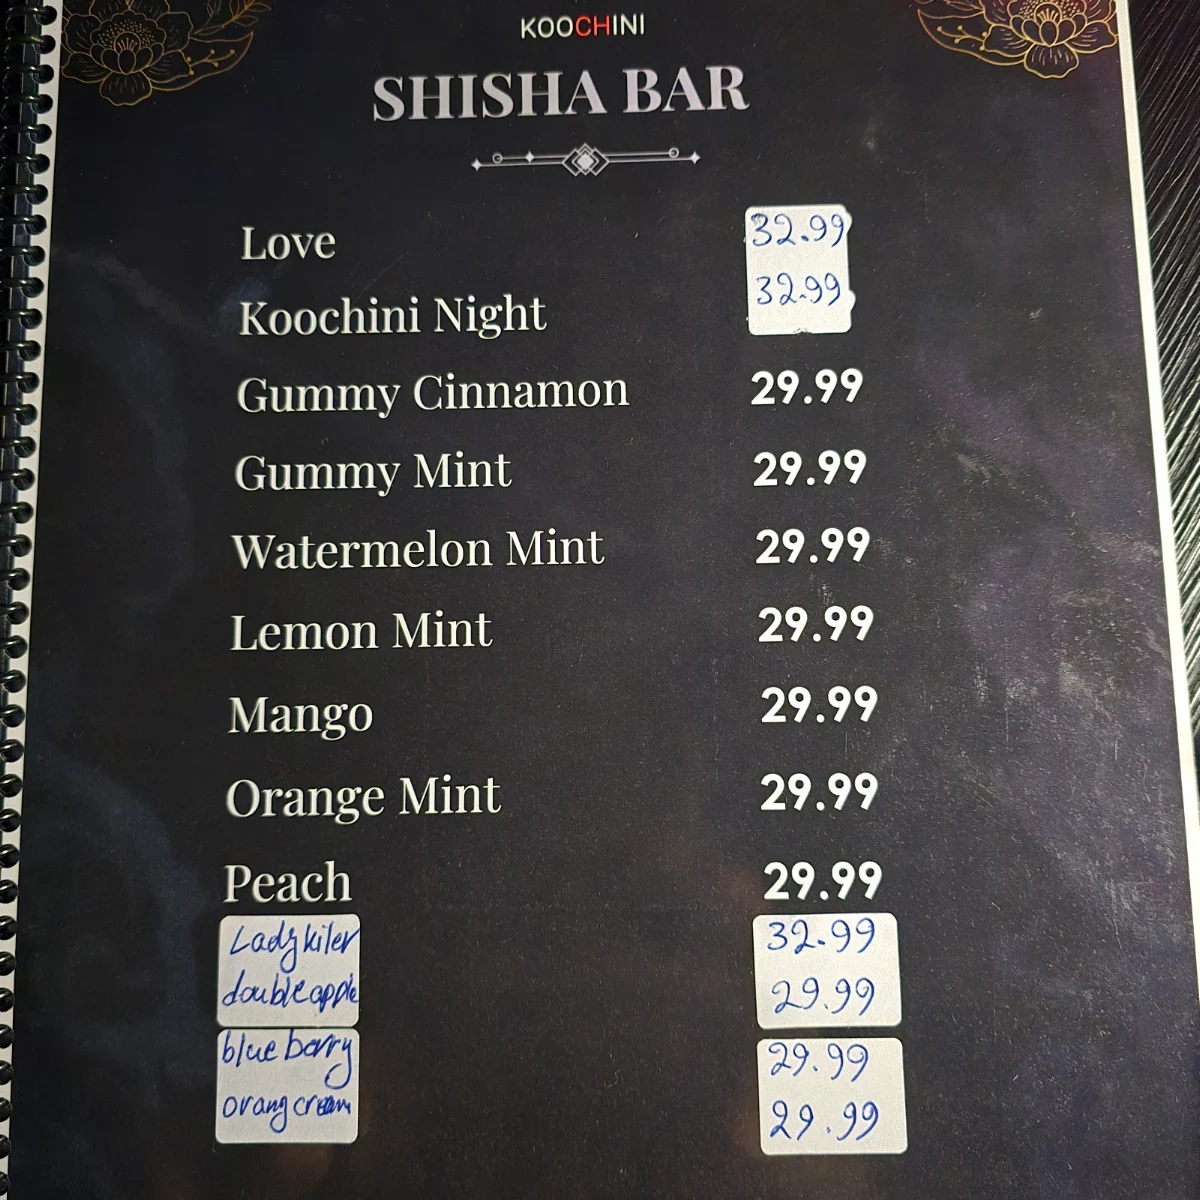 KOOCHINI
SHISHA BAR
Love 32.99
Koochini Night 32.99
Gummy Cinnamon 29.99
Gummy Mint 29.99
Watermelon Mint 29.99
Lemon Mint 29.99
Mango 29.99
Orange Mint 29.99
Peach 29.99
Lady kiler 32.99
double apple 29.99
blue berry 29.99
orang cream 29.99